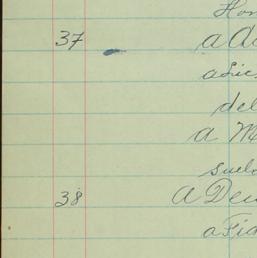 Hon
37 a Au
a Lic
del
a M
suel
38 a Deu
a Fia